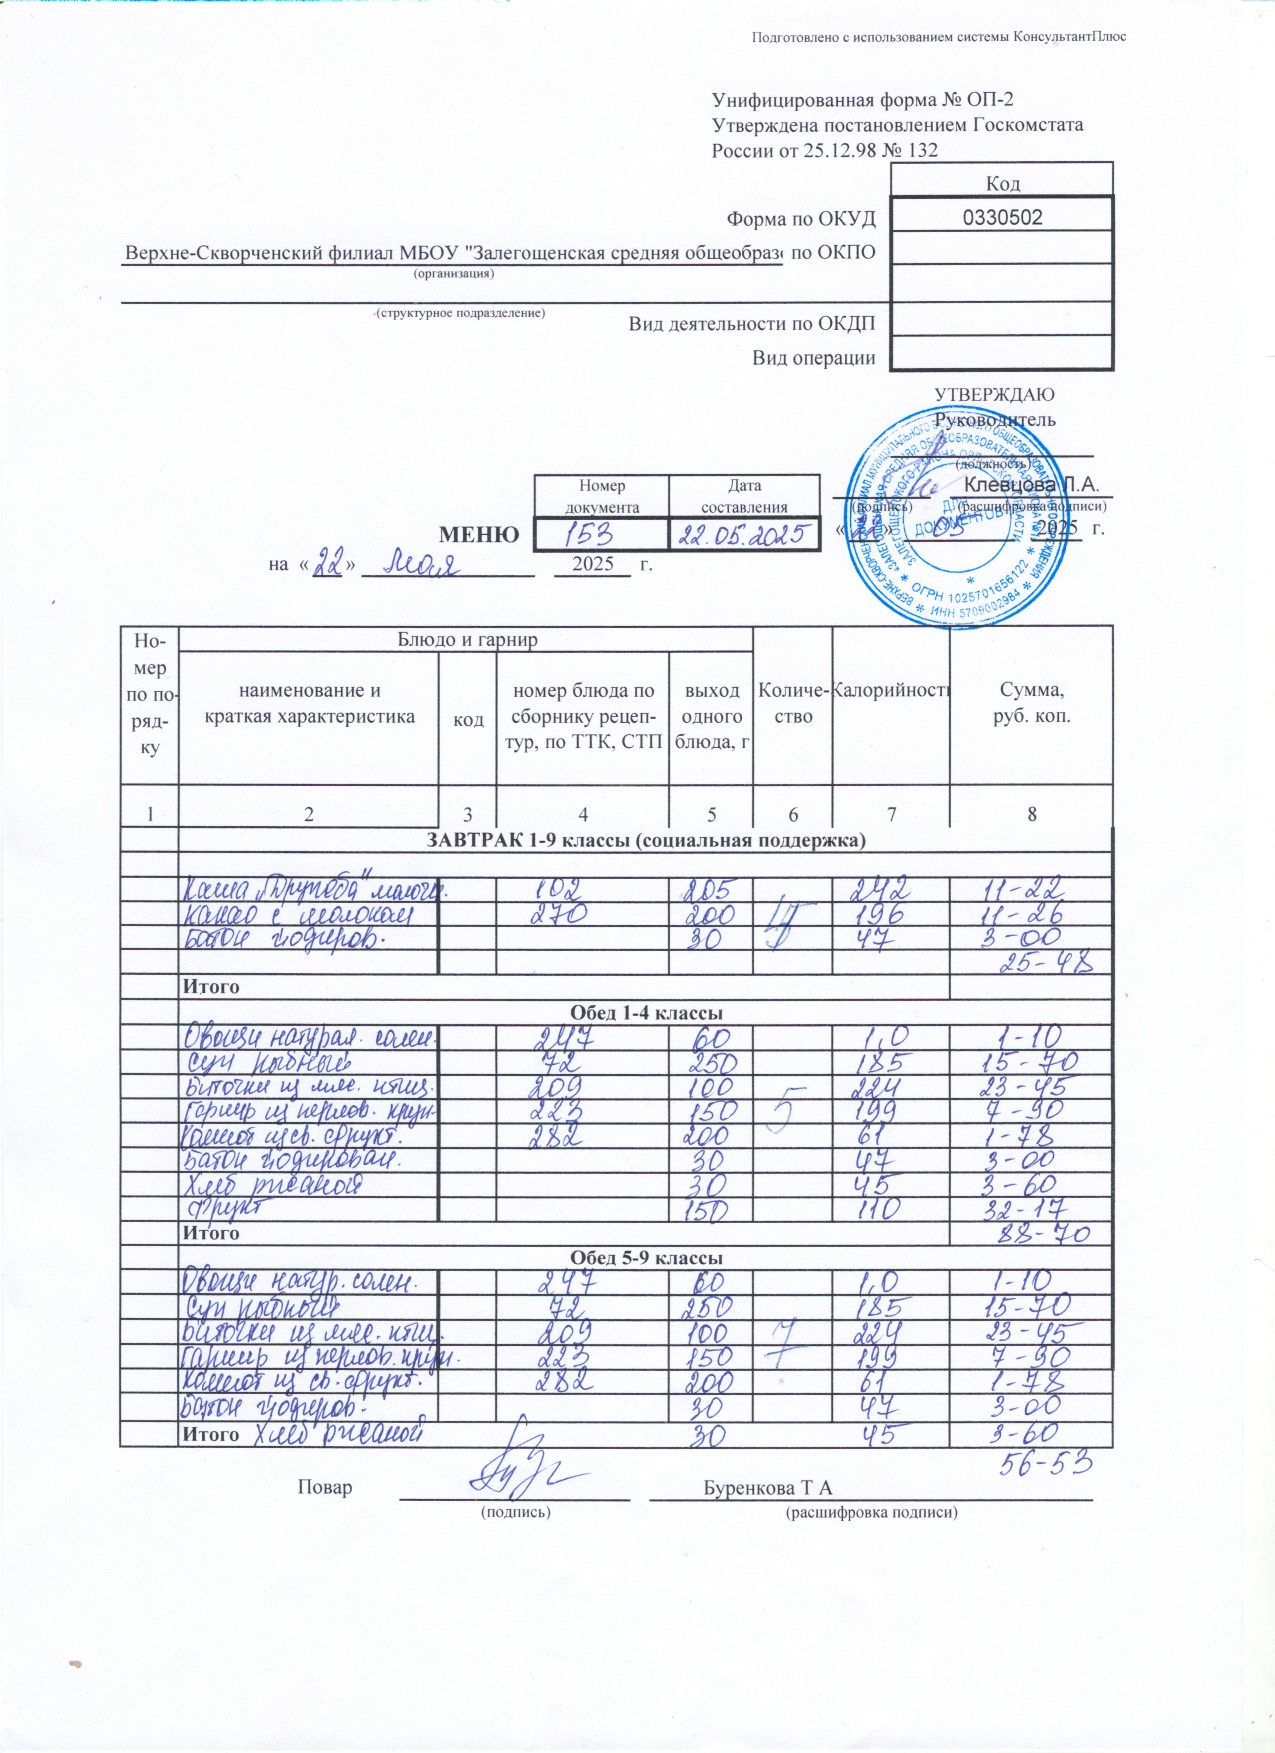 Подготовлено с использованием системы КонсультантПлюс
Унифицированная форма № ОП-2
Утверждена постановлением Госкомстата
России от 25.12.98 № 132
Код
Форма по ОКУД 0330502
Верхне-Скворченский филиал МБОУ "Залегощенская средняя общеобраз по ОКПО
(организация)
(структурное подразделение)
Вид деятельности по ОКДП
Вид операции
УТВЕРЖДАЮ
Руководитель
(должность)
Клевцова Л.А.
(подпись) (расшифровка подписи)
« » 05 2025 г.
ДЛЯ ДОКУМЕНТОВ
ОГРН 1025701656122
ИНН 5709002984
Номер документа Дата составления
МЕНЮ 153 22.05.2025
на « 22 » мая 2025 г.
Но-мер по по-ряд-ку Блюдо и гарнир Количе-ство Калорийность Сумма, руб. коп.
наименование и краткая характеристика код номер блюда по сборнику рецеп-тур, по ТТК, СТП выход одного блюда, г
1 2 3 4 5 6 7 8
ЗАВТРАК 1-9 классы (социальная поддержка)
Каша "Дружба" молочн. 102 205 242 11-22
Какао с молоком 270 200 196 11-26
Батон йодиров. 30 47 3-00
25-48
Итого
Обед 1-4 классы
Овощи натурал. солен. 247 60 1,0 1-10
Суп рыбный 72 250 185 15-70
Биточки из мяс. птиц. 209 100 224 23-45
Гарнир из перлов. круп. 223 150 5 199 7-90
Компот из св. фрукт. 282 200 61 1-78
Батон йодирован. 30 47 3-00
Хлеб ржаной 30 45 3-60
Фрукт 150 110 32-17
Итого 88-70
Обед 5-9 классы
Овощи натур. солен. 247 60 1,0 1-10
Суп рыбный 72 250 185 15-70
Биточки из мяс. птиц. 209 100 7 224 23-45
Гарнир из перлов. круп. 223 150 199 7-90
Компот из св. фрукт. 282 200 61 1-78
Батон йодиров. 30 47 3-00
Итого Хлеб ржаной 30 45 3-60
56-53
Повар Буренкова Т А
(подпись) (расшифровка подписи)